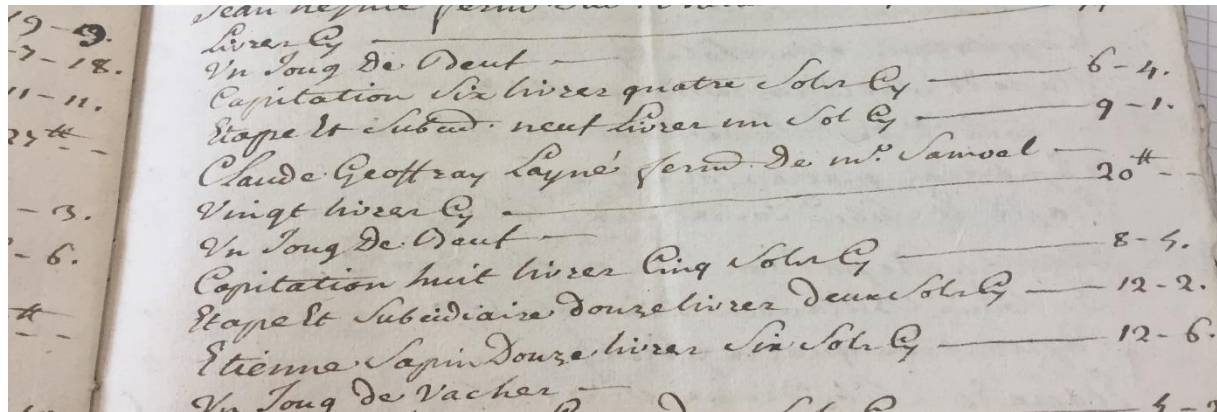 19-9.
7-18.
11-11.
27 tt -
- 3.
- 6.
tt -
Livres Cy
Un Joug De Beuf
Capitation Six livres quatre Sols Cy 6-4.
Etape Et Subsid. neuf Livres un Sol Cy 9-1.
Claude Geoffray Layné ferm. De mr. Samoel
Vingt livres Cy 20 tt -
Un Joug De Beuf
Capitation huit livres Cinq Sols Cy 8-5.
Etape Et Subsidiaire Douze livres Deux Sols Cy 12-2.
Etienne Sapin Douze livres Six Sols Cy 12-6.
Un Joug De Vacher